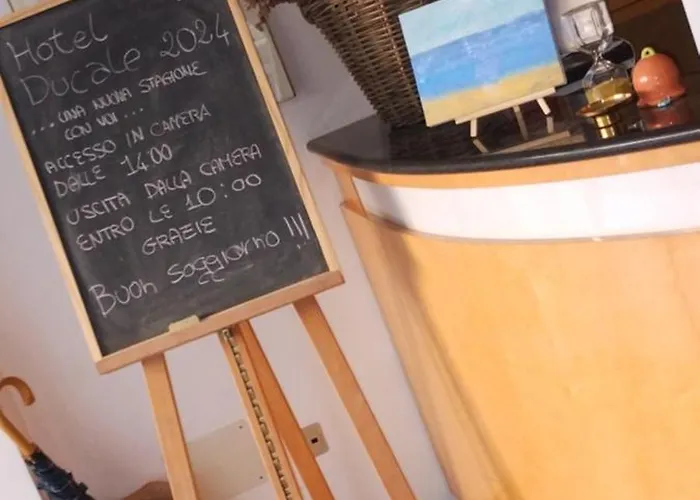 Hotel
Ducale 2024
...UNA NUOVA STAGIONE
CON VOI...
ACCESSO IN CAMERA
DALLE 14:00
USCITA DALLA CAMERA
ENTRO LE 10:00
GRAZIE
Buon soggiorno !!!